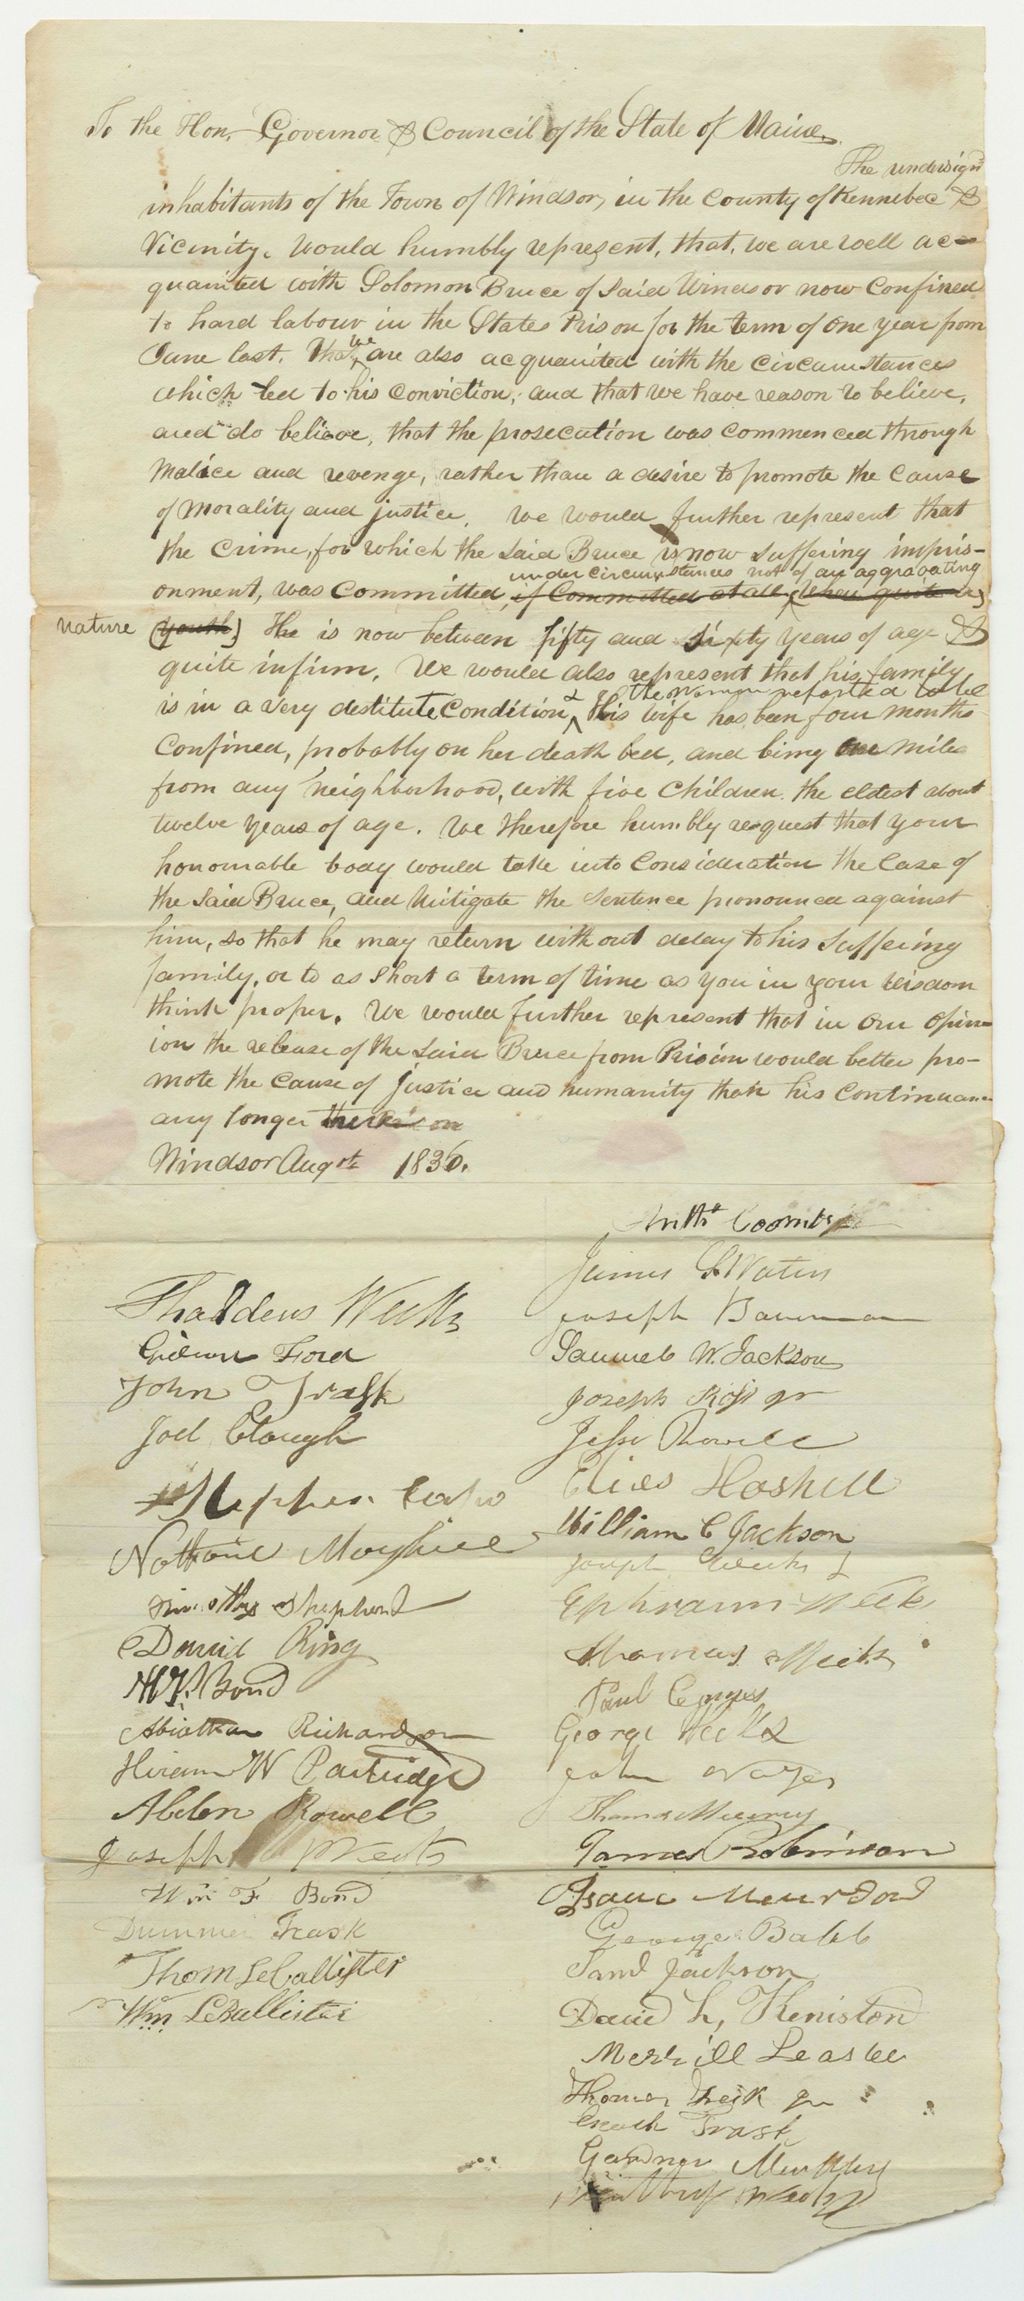 To the Hon. Governor & Council of the State of Maine.
The undersignd
inhabitants of the Town of Windsor, in the County of Kennebec &
Vicinity. Would humbly represent, that, we are well ac-
quainted with Solomon Bruce of Said Windsor now Confined
to hard labour in the States Prison for the term of one year from
June last. That we are also acquainted with the Circumstances
which led to his Conviction, and that we have reason to believe,
and do believe, that the prosecution was Commenced through
Malice and revenge, rather than a desire to promote the Cause
of Morality and justice. We would further represent that
the Crime, for which the Said Bruce is now Suffering impris-
under Circumstances not of an aggravating
onment, was Committed, if Committed at all, (when quite in)
nature (youth) He is now between fifty and sixty years of age &
quite infirm. We would also represent that his family
& the Woman reported to be
is in a very destitute Condition, his wife has been four months
Confined, probably on her death bed, and being one mile
from any neighborhood, with five Children. the eldest about
twelve years of age. We therefore humbly request that your
honourable body would take into Consideration the Case of
the Said Bruce, and Mitigate the Sentence pronounced against
him, so that he may return without delay to his Suffering
family, or to as Short a term of time as you in your wisdom
think proper. We would further represent that in our Opin-
ion the release of the Said Bruce from Prison would better pro-
mote the Cause of justice and humanity than his Continuance
any longer
Windsor Augst 1836.
Coombs
James S. Waters
Thaddeus Weeks
Joseph Bowman
Gideon Ford
Samuel W. Jackson
John Trask
Joseph Ross Jr
Joel Clough
Jesse Rowell
Stephen
Elias Haskell
William C Jackson
Nathaniel Mayhue
Joseph Weeks
Timothy Shepherd
Ephraim Weeks
David Ring
Thomas Weeks
Bond
Paul
Abiathar Richardson
George Weeks
Hiram W Partridge
John Noyes
Alden Rowell
Thomas
James Robinson
Joseph Weeks
Wm F Bond
Isaac
Dummer Trask
George Babb
Thom LeCallister
Saml Jackson
Wm LeBallister
David L, Keniston
Merrill Leaske
Thomas Jr
Enoch Trask
Gardner
Winthrop Weeks